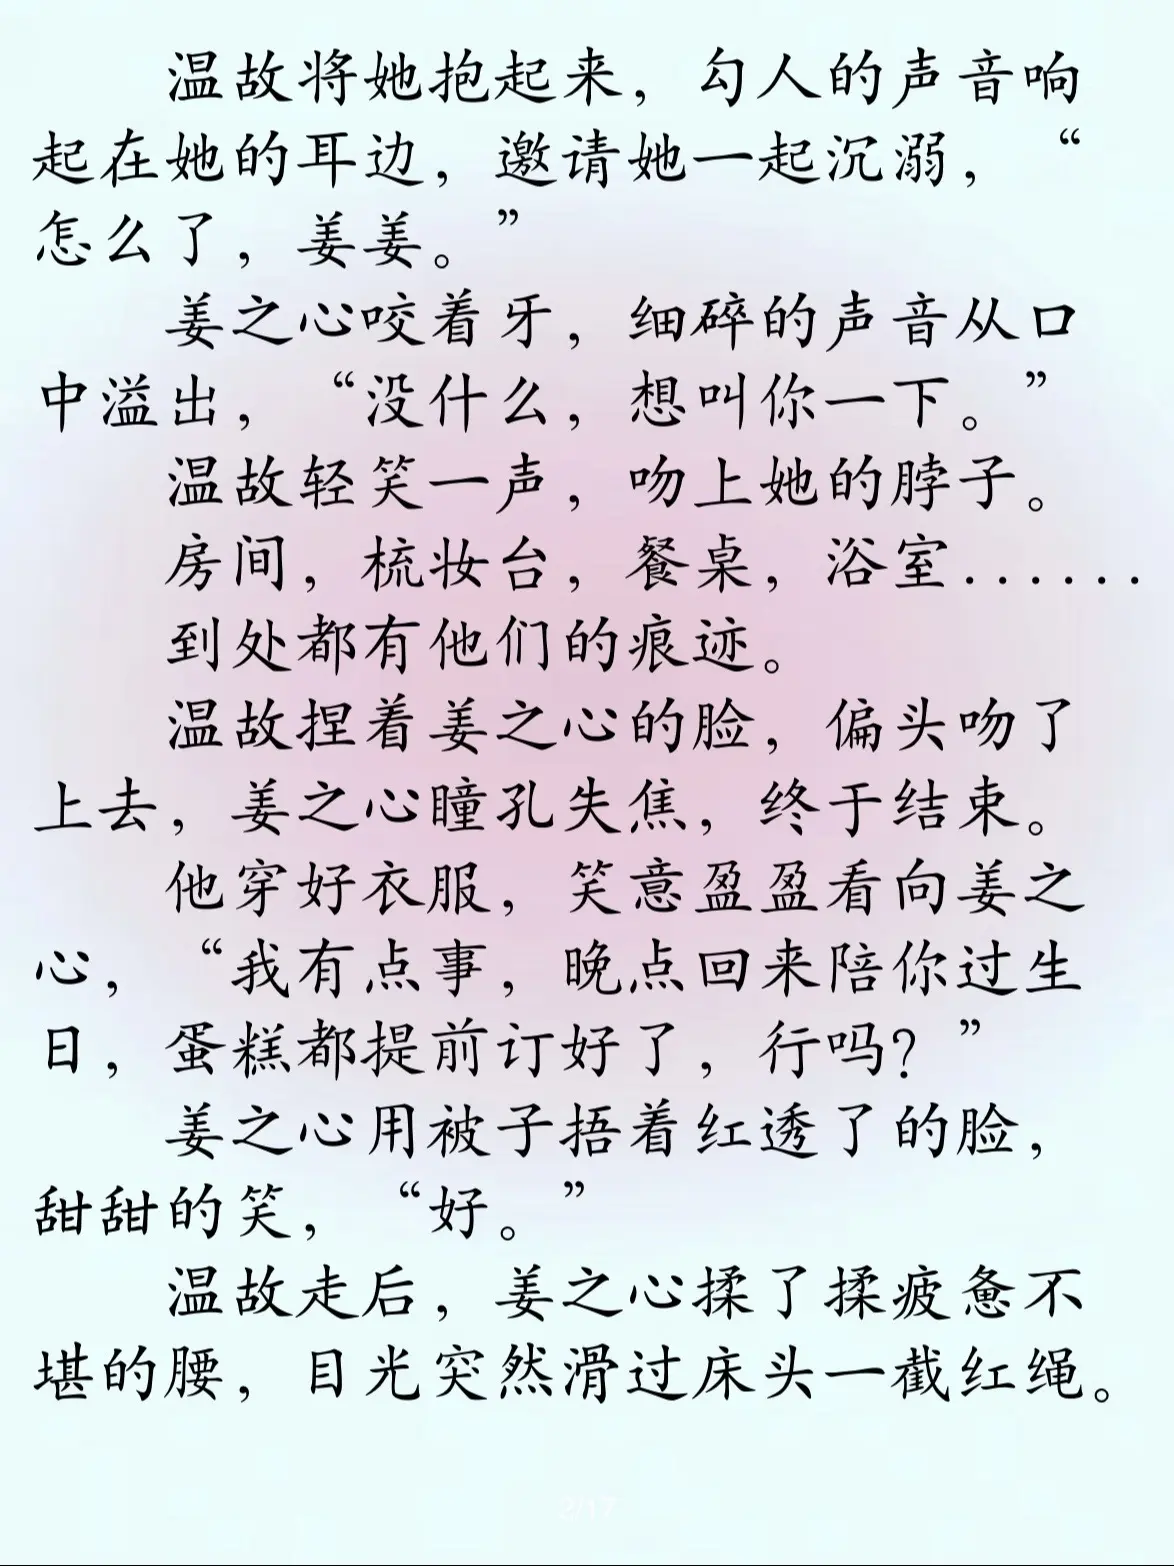 温故将她抱起来，勾人的声音响
起在她的耳边，邀请她一起沉溺，“
怎么了，姜姜。”
姜之心咬着牙，细碎的声音从口
中溢出，“没什么，想叫你一下。”
温故轻笑一声，吻上她的脖子。
房间，梳妆台，餐桌，浴室......
到处都有他们的痕迹。
温故捏着姜之心的脸，偏头吻了
上去，姜之心瞳孔失焦，终于结束。
他穿好衣服，笑意盈盈看向姜之
心，“我有点事，晚点回来陪你过生
日，蛋糕都提前订好了，行吗？”
姜之心用被子捂着红透了的脸，
甜甜的笑，“好。”
温故走后，姜之心揉了揉疲惫不
堪的腰，目光突然滑过床头一截红绳。
2/17